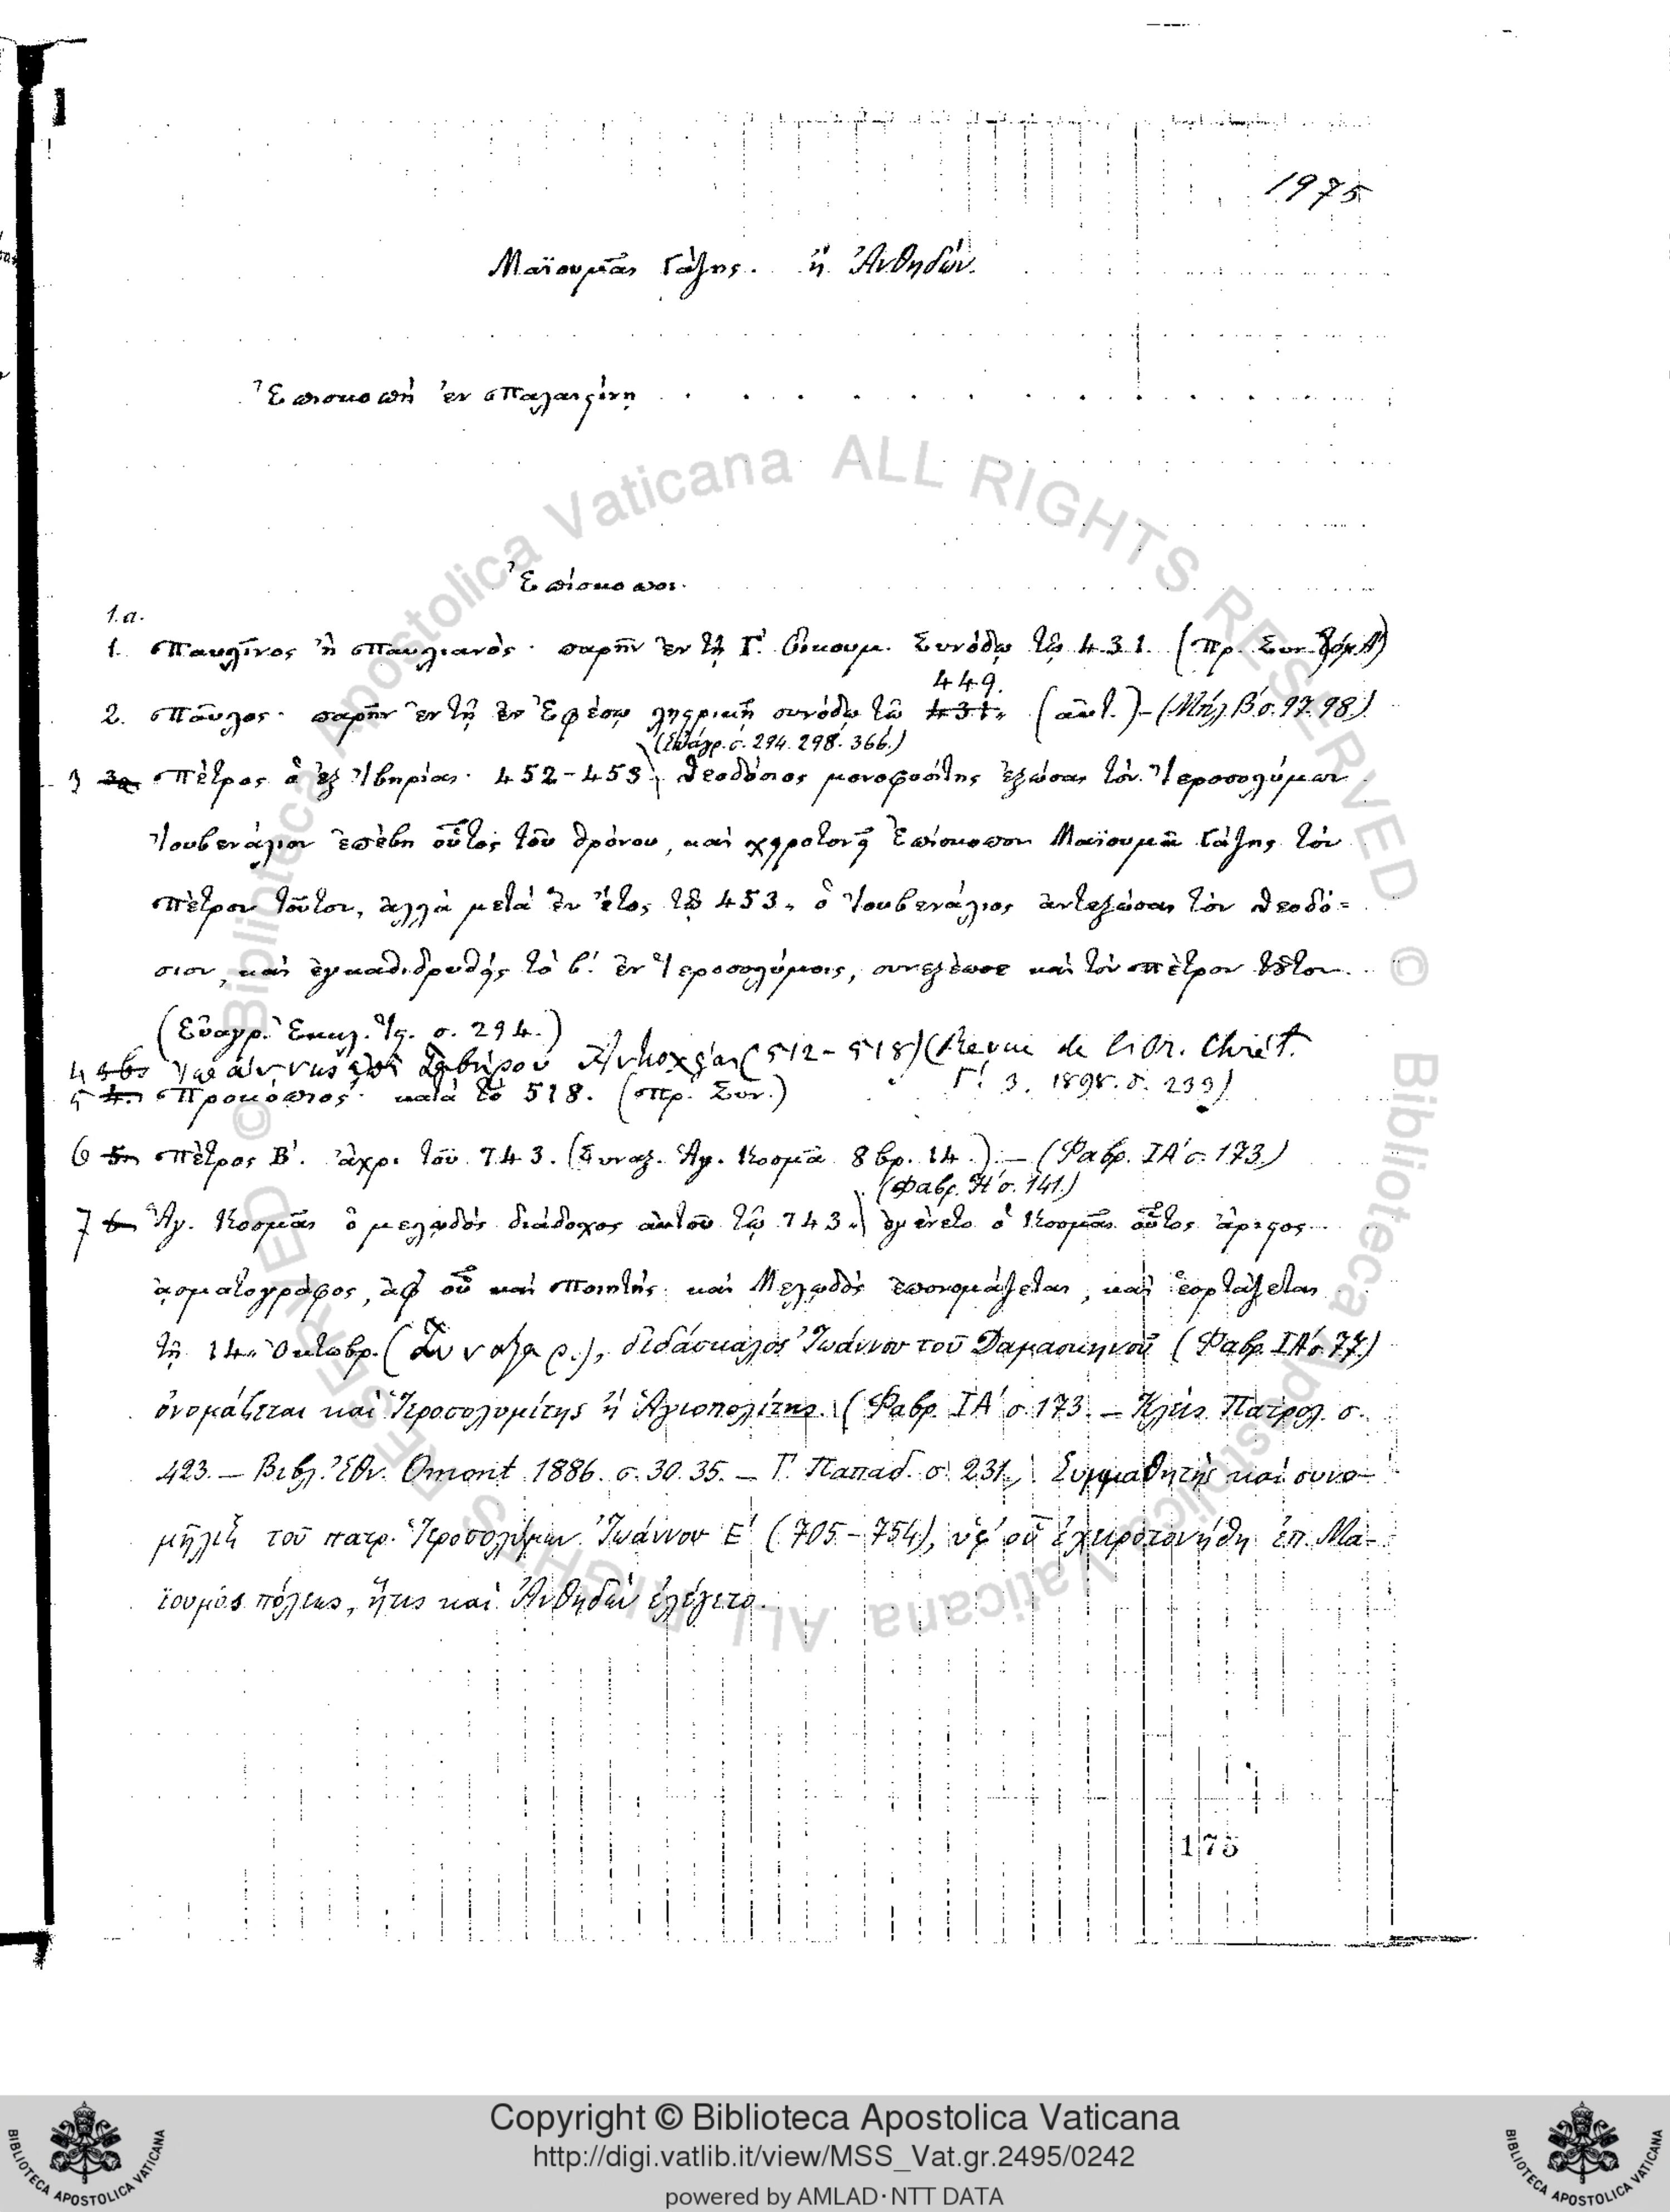 1975
Μαϊουμᾶς Γάζης. ἤ Ἀνθηδών.
Ἐπισκοπή ἐν Παλαιστίνῃ
Ἐπίσκοποι.
1.α.
1. Παυλῖνος ἤ Παυλιανός· παρῆν ἐν τῇ Γ΄. Οἰκουμ. Συνόδῳ τῷ 431. (Πρ. Συν. Τόμ. Α)
449.
2. Παῦλος· παρῆν ἐν τῇ ἐν Ἐφέσῳ λῃστρικῇ συνόδῳ τῷ 431. (αὐτ.) – (Μήλ. Β΄ σ. 97. 98)
(Εὐάγρ. σ. 294. 298. 366.)
3 3α Πέτρος ὁ ἐξ Ἰβηρίας· 452-453 Θεοδόσιος μονοφυσίτης ἐξώσας τόν Ἱεροσολύμων
Ἰουβενάλιον ἐπέβη οὗτος τοῦ θρόνου, καί χειροτονεῖ Ἐπίσκοπον Μαϊουμᾶ Γάζης τόν
Πέτρον τοῦτον, ἀλλά μετά ἕν ἔτος τῷ 453. ὁ Ἰουβενάλιος ἀντεξώσας τόν Θεοδό=
σιον, καί ἐγκαθιδρυθείς τό β΄. ἐν Ἱεροσολύμοις, συνεξέωσε καί τόν Πέτρον τοῦτον.
(Εὐαγρ. Ἐκκλ. Ἱστ. σ. 294.)
4 Ἰωάννης ἐπί Σεβήρου Ἀντιοχείας (512-518) (Revue de l'Or. Chrét.
Γ΄. 3. 1898. σ. 233)
5 4. Προκόπιος· κατά τό 518. (Πρ. Συν.)
6 5. Πέτρος Β΄. ἄχρι τοῦ 743. (Συναξ. Ἁγ. Κοσμᾶ 8βρ. 14.) – (Φαβρ. ΙΑ΄ σ. 173.)
(Φαβρ. Η΄ σ. 141.)
7 6. Ἅγ. Κοσμᾶς ὁ μελῳδός διάδοχος αὐτοῦ τῷ 743. ἐγένετο ὁ Κοσμᾶς οὗτος ἄριστος
ᾀσματογράφος, ἀφ' οὗ καί Ποιητής καί Μελῳδός ἐπονομάζεται, καί ἑορτάζεται
τῇ 14. Ὀκτωβρ. (Συναξαρ.), διδάσκαλος Ἰωάννου τοῦ Δαμασκηνοῦ (Φαβρ. ΙΑ΄ σ. 77.)
ὀνομάζεται καί Ἱεροσολυμίτης ἤ Ἁγιοπολίτης. (Φαβρ. ΙΑ΄ σ. 173. – Κλείς Πατρολ. σ.
423. – Βιβλ. Ἐθν. Omont 1886. σ. 30. 35. – Γ. Παπαδ. σ. 231. Συμμαθητής καί συνο-
μῆλιξ τοῦ πατρ. Ἱεροσολύμων Ἰωάννου Ε΄ (705-754), ὑφ' οὗ ἐχειροτονήθη ἐπ. Μα-
ϊουμᾶς πόλεως, ἥτις καί Ἀνθηδών ἐλέγετο.
175
© Biblioteca Apostolica Vaticana ALL RIGHTS RESERVED
© Biblioteca Apostolica Vaticana ALL RIGHTS RESERVED
Copyright © Biblioteca Apostolica Vaticana
http://digi.vatlib.it/view/MSS_Vat.gr.2495/0242
powered by AMLAD·NTT DATA
BIBLIOTECA APOSTOLICA VATICANA
BIBLIOTECA APOSTOLICA VATICANA